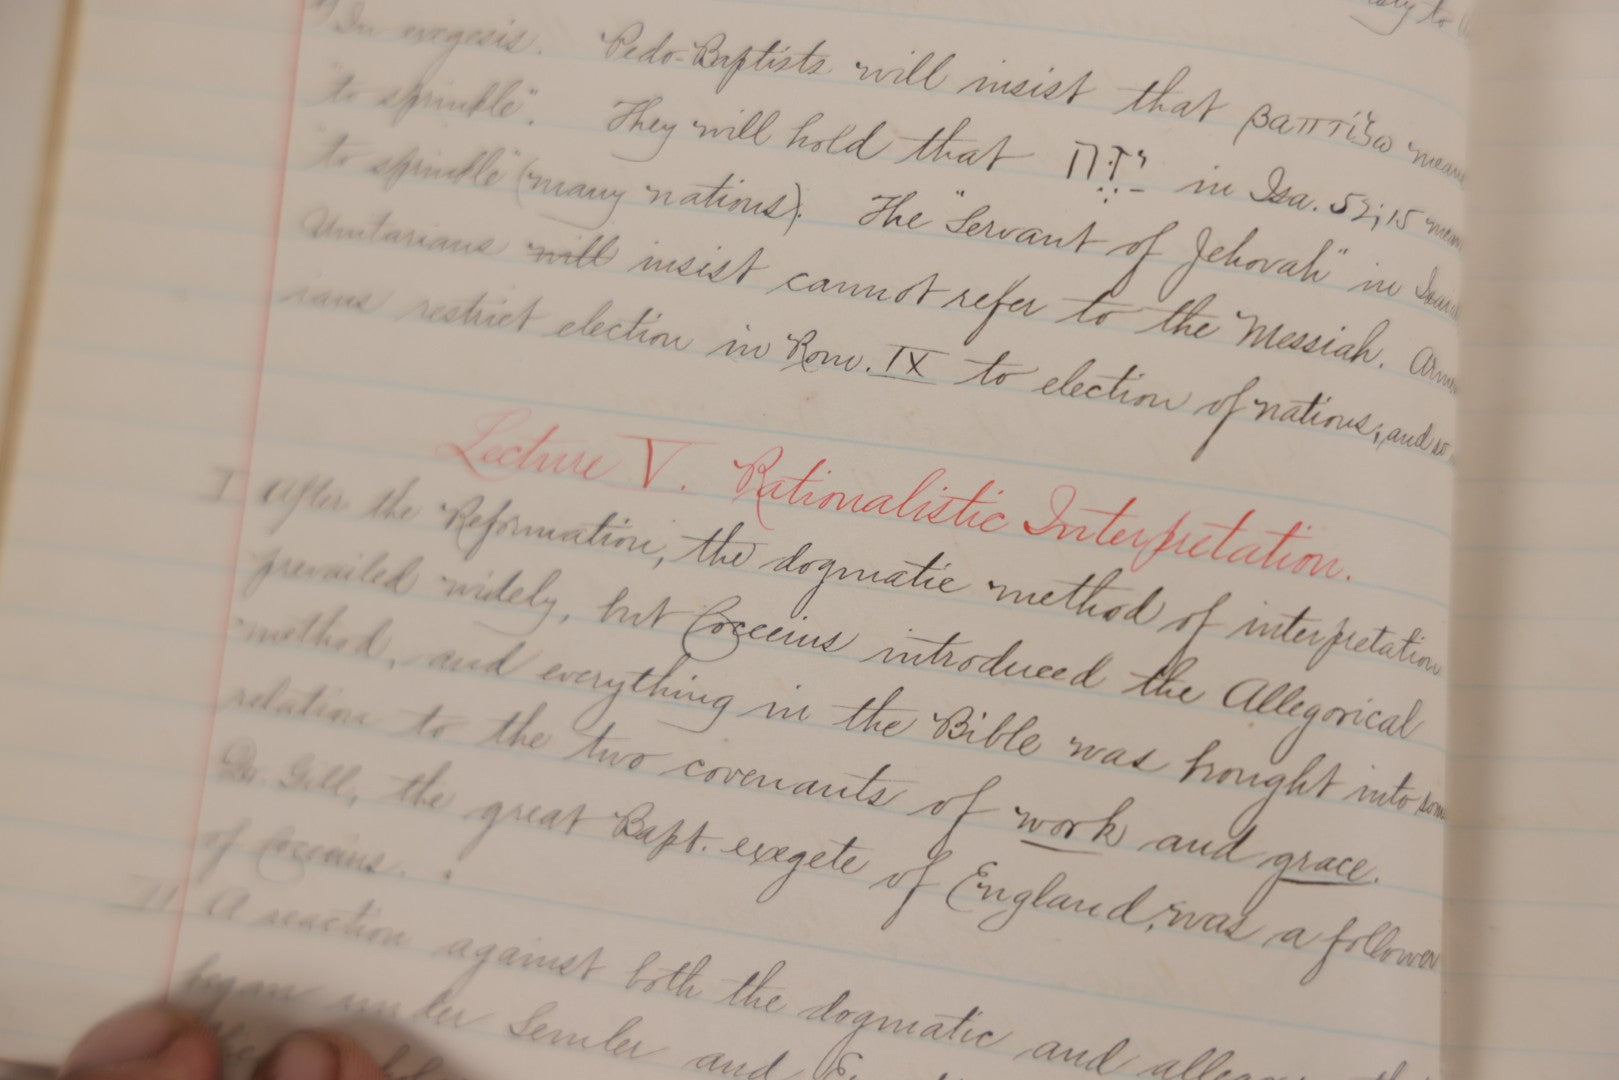 In exegesis. Pedo-Baptists will insist that βαπτίζω means
"to sprinkle". They will hold that יַזֶּה in Isa. 52;15
"to sprinkle" (many nations). The "Servant of Jehovah" in
Unitarians will insist cannot refer to the Messiah.
restrict election in Rom. IX to election of nations; and so
Lecture V. Rationalistic Interpretation.
I After the Reformation, the dogmatic method of interpretation
prevailed widely, but Cocceius introduced the Allegorical
method, and everything in the Bible was brought into some
relation to the two covenants of work and grace.
Dr. Gill, the great Bapt. exegete of England, was a follower
of Cocceius.
II A reaction against both the dogmatic and
began under Semler and